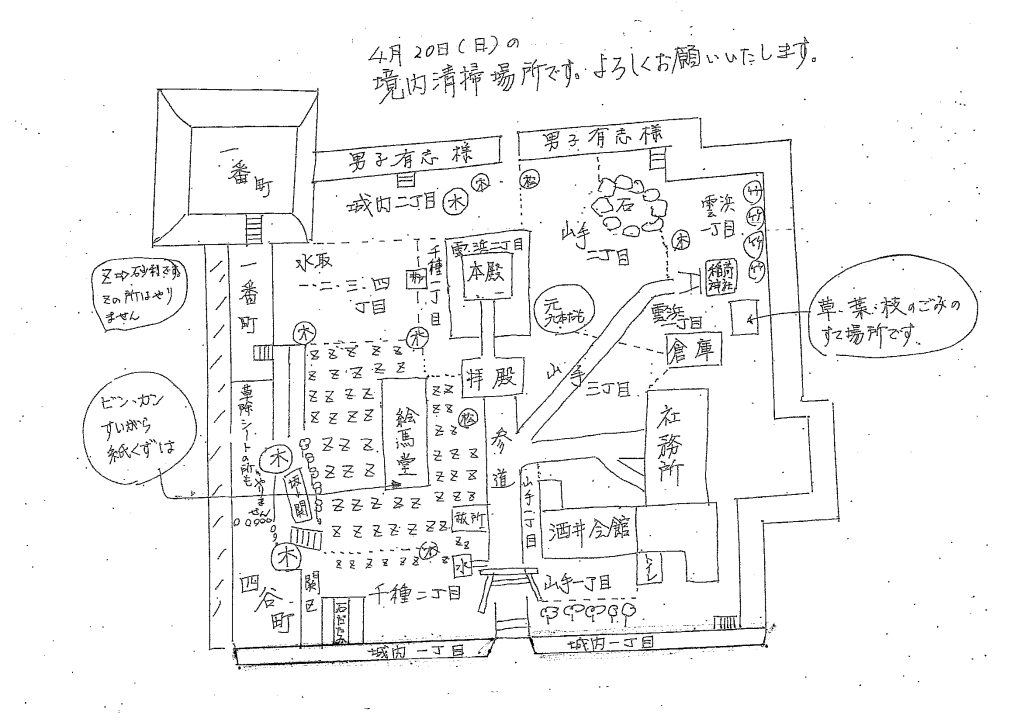 4月20日(日)の
境内清掃場所です。よろしくお願いいたします。
一番町
男子有志様
男子有志様
城内二丁目
木
木
松
石
山手
二丁目
木
雲浜
一丁目
竹
竹
竹
竹
水取
一・二・三・四
丁目
千種一丁目
雲浜二丁目
本殿
稲荷
神社
一番町
Z⇒砂利です
Zの所はやり
ません
元
雲浜
一丁目
倉庫
草・葉・枝のごみの
すて場所です。
木
木
拝殿
山手
三丁目
ビン・カン
すいがら
紙くずは
草除シートの所も
やりません
絵馬堂
松
参道
社務所
木
山手一丁目
酒井会館
トイレ
木
木
水
四谷町
関区
千種二丁目
山手一丁目
城内一丁目
城内一丁目